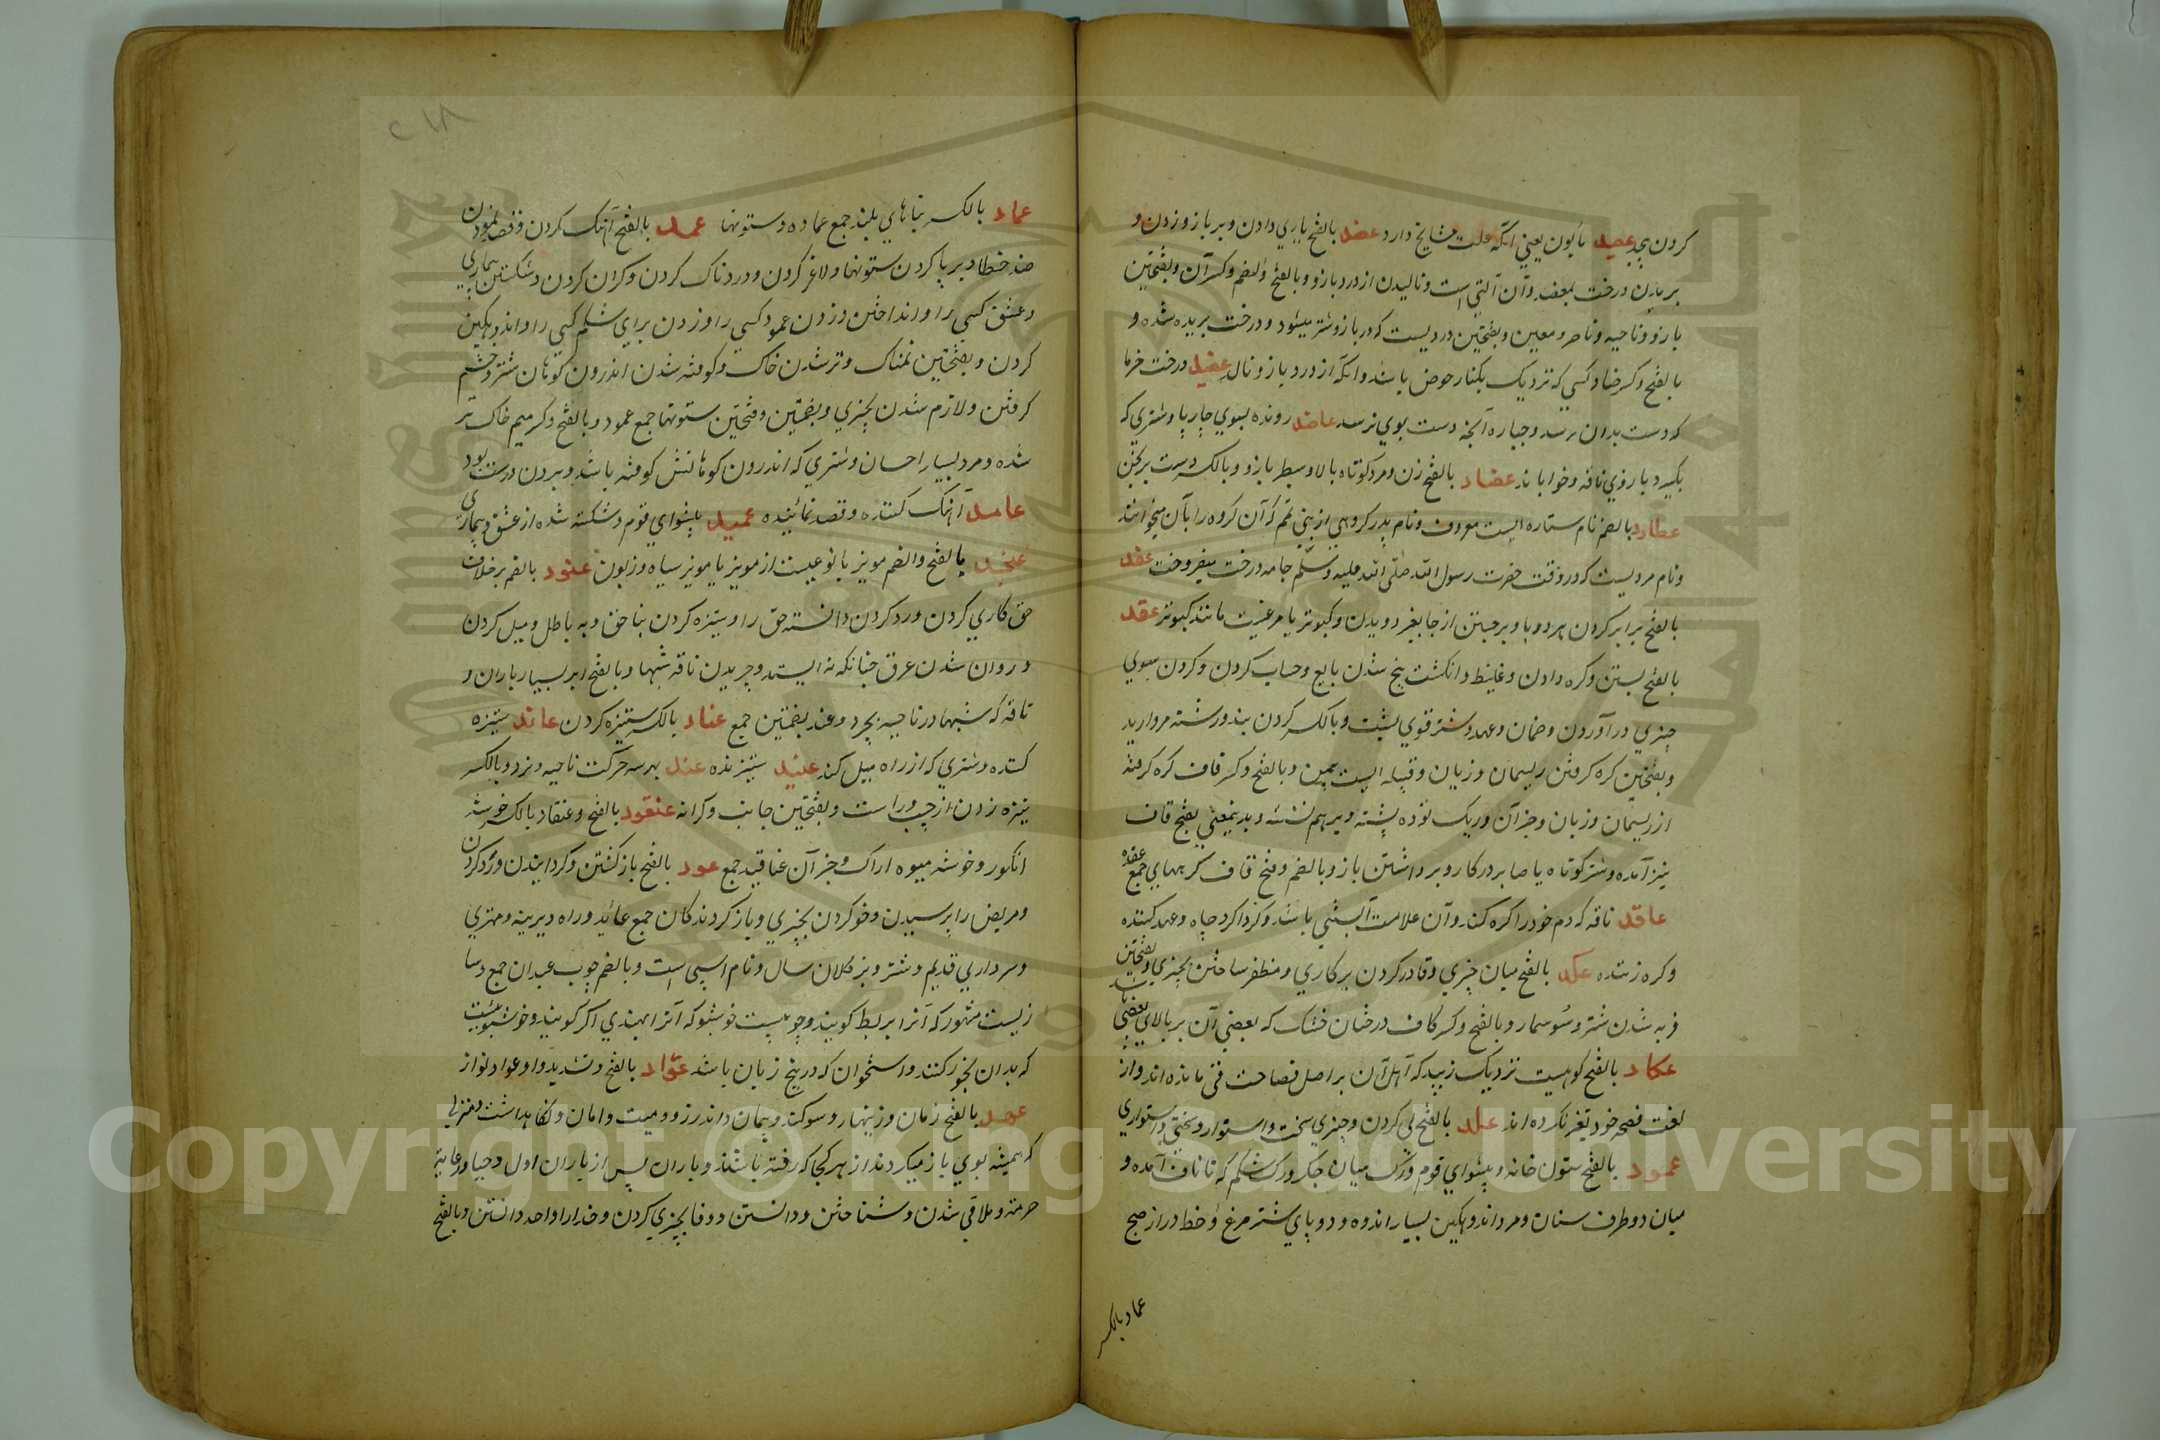 کردن بجد عصید مأبون یعنی آنکه علت مشایخ دارد عضد بالفتح یاری دادن و بر بازو زدن و
بریدن درخت بمعضد و آن آلتی است و نالیدن از درد بازو و بالفتح والضم و کسر آن و بفتحتین
بازو و ناحیه و ناصر و معین و بفتحتین دردیست که در بازو شتر میشود و درخت بریده شده و
بالفتح و کسر ضاد کسی که نزدیک بکنار حوض باشد و آنکه از درد بازو نالد عضید درخت خرما
که دست بدان رسد و جباره آنچه دست بوی نرسد عاضد رونده بسوی چارپا و شتری که
بگیرد بازوی ناقه و خواباند عضاد بالفتح زن و مرد کوتاه بالا و سطبر بازو و بالکسر دست برنجن
عطارد بالضم نام ستاره ایست معروف و نام پدر گروهی از بنی تمیم که آن گروه را بآن میخوانند
و نام مردیست که در وقت حضرت رسول الله صلی الله علیه وسلم جامه درخت میفروخت عفد
بالفتح برابر کردن هر دو پا و برجستن از جا بغیر دویدن و کبوتر یا مرغیست مانند کبوتر عقد
بالفتح بستن و گره دادن و غلیظ و انگشت پیچ شدن بایع و حساب کردن و گردن بسوی
چیزی درآوردن و ضمان و عهد و شتر قوی پشت و بالکسر گردن بند و رشته مروارید
و بفتحتین گره گرفتن ریسمان و زبان و قبیله ایست بیمن و بالفتح و کسر قاف گره گرفته
از ریسمان و زبان و جز آن و ریک توده پشته و برهم نشسته و بدینمعنی بفتح قاف
نیز آمده و شتر کوتاه یا صابر در کار و برداشتن بار و بالضم و فتح قاف گرههای جمع عقده
عاقد ناقه که دم خود را گره کند و آن علامت آبستنی باشد و گرداگرد چاه و عهد کننده
و گره زننده عکد بالفتح میان چیزی و قادر کردن بر کاری و مظفر ساختن بچیزی و بفتحتین
فربه شدن شتر و سوسمار و بالفتح و کسر کاف درختان خشک که بعضی آن بر بالای بعضی باشد
عکاد بالفتح کوهیست نزدیک زبید که اهل آن بر اصل فصاحت فی مانده اند و از
لغت فصحه خود تغیر نکرده اند علد بالفتح پی گردن و چیزی سخت و استوار و سختی و استواری
عمود بالفتح ستون خانه و پیشوای قوم و رگ میان جگر و رگ شکم که تا ناف آمده و
میان دو طرف سنان و مرد اندوهگین بسیار اندوه و دو پای شترمرغ و خط دراز صبح
عماد بالکسر
۲۱۸
عماد بالکسر بناهای بلند جمع عماده و ستونها عمد بالفتح آهنگ کردن و قصد نمودن
ضد خطا و برپا کردن ستونها و لاغر کردن و دردناک کردن و گران کردن و شکستن بیماری
و عشق کسی را و انداختن و زدن عمود کسی را و زدن برای شکم کسی را و اندوهگین
کردن و بفتحتین نمناک و تر شدن خاک و کوفته شدن اندرون کوهان شتر و خشم
گرفتن و لازم شدن بچیزی و بضمتین و فتحتین ستونها جمع عمود و بالفتح و کسر میم خاک تر
شده و مرد بسیار احسان و شتری که اندرون کوهانش کوفته باشد و بیرون درست بود
عامد آهنگ کننده و قصد نماینده عمید پیشوای قوم و شکسته شده از عشق و بیماری
عنجد بالفتح والضم مویز یا نوعیست از مویز یا مویز سیاه و زبون عنود بالضم برخلاف
حق کاری کردن و رد کردن دانسته حق را و ستیزه کردن بناحق و به باطل و میل کردن
و روان شدن عرق چنانکه نه ایستد و چریدن ناقه شبها و بالفتح ابر بسیار باران و
ناقه که شبها در ناحیه بچرد و عند بضمتین جمع عناد بالکسر ستیزه کردن عاند ستیزه
کننده و شتری که از راه میل کند عنید ستیزنده عند بهر سه حرکت ناحیه و نزد و بالکسر
نیزه زدن از چپ و راست و بفتحتین جانب و کرانه عنقود بالفتح و عنقاد بالکسر خوشه
انگور و خوشه میوه اراک و جز آن عناقید جمع عود بالفتح بازگشتن و گردانیدن و رد کردن
و مریض را پرسیدن و خو کردن بچیزی و باز گردندگان جمع عائد و راه دیرینه و مهتری
و سرداریی قدیم و شتر و بز کلان سال و نام اسپی است و بالضم چوب عیدان جمع و سا
زیست مشهور که آنرا بربط گویند و چوبیست خوشبو که آنرا بهندی اگر گویند و خوشبوئیست
که بدان بخور کنند و استخوان که در بیخ زبان باشد عوّاد بالفتح و تشدید واو عود نواز
عهد بالفتح زمان و زینهار و سوگند و پیمان و اندرز و وصیت و امان و نگاهداشت و منزلی
که همیشه بوی باز میگردند از هر کجا که رفته باشند و باران پس از باران اول و حیا و رعایت
حرمت و ملاقی شدن و شناختن و دانستن و وفا بچیزی کردن و خدا را واحد دانستن و بالفتح